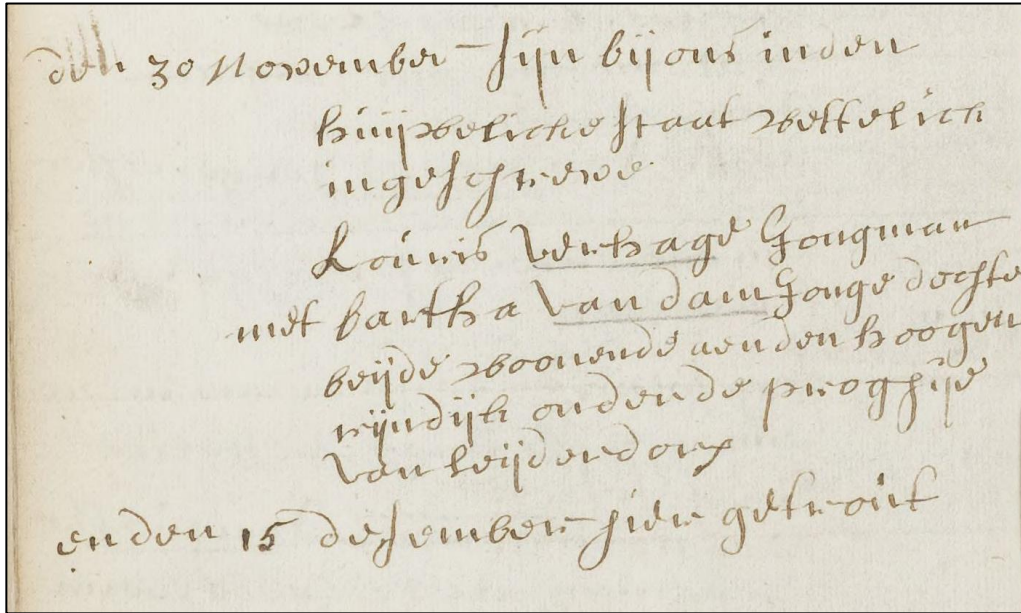 den 30 November sijn bij ons inden
huijweliche staat wettelich
ingeschrewe
Louwris Verhage Jongman
met bartha van dam Jonge dochte
beijde woonende aenden hoogen
rijndijk onder de proghije
van leijderdorp
enden 15 desember hier getrout